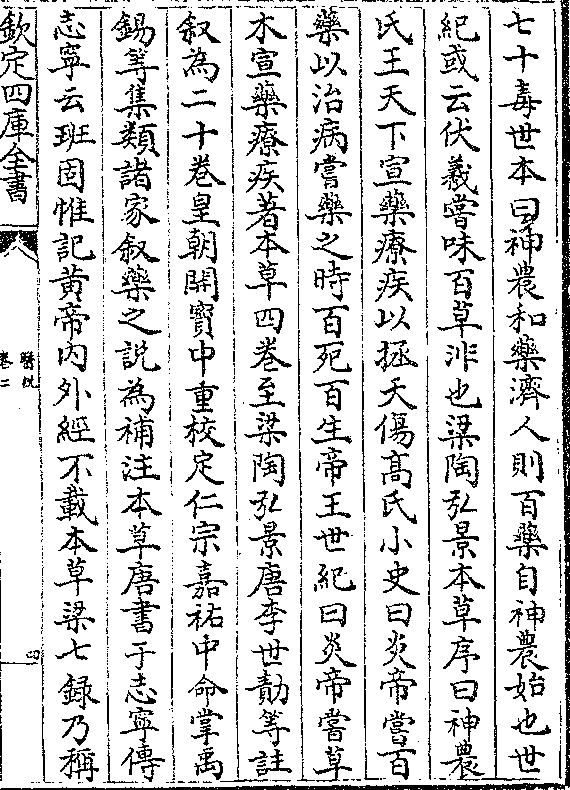 七十毒世本曰神農和藥濟人則百藥自神農始也世
紀或云伏羲嘗味百草非也梁陶弘景本草序曰神農
氏王天下宣藥療疾以拯夭傷高氏小史曰炎帝嘗百
藥以治病嘗藥之時百死百生帝王世紀曰炎帝嘗草
木宣藥療疾著本草四卷至梁陶弘景唐李世勣等註
叙為二十卷皇朝開寳中重校定仁宗嘉祐中命掌禹
錫等集類諸家叙藥之説為補注本草唐書于志寧傳
志寧云班固惟記黃帝内外經不載本草梁七録乃稱
欽定四庫全書
醫説
卷二
四